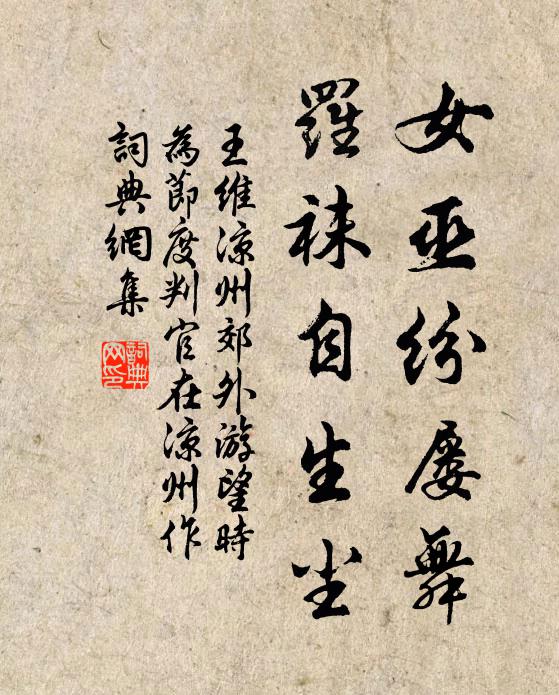 女巫紛屢舞
羅袜自生尘
王維涼州郊外游望時
為節度判官在涼州作
詞典網集
詞典
网印